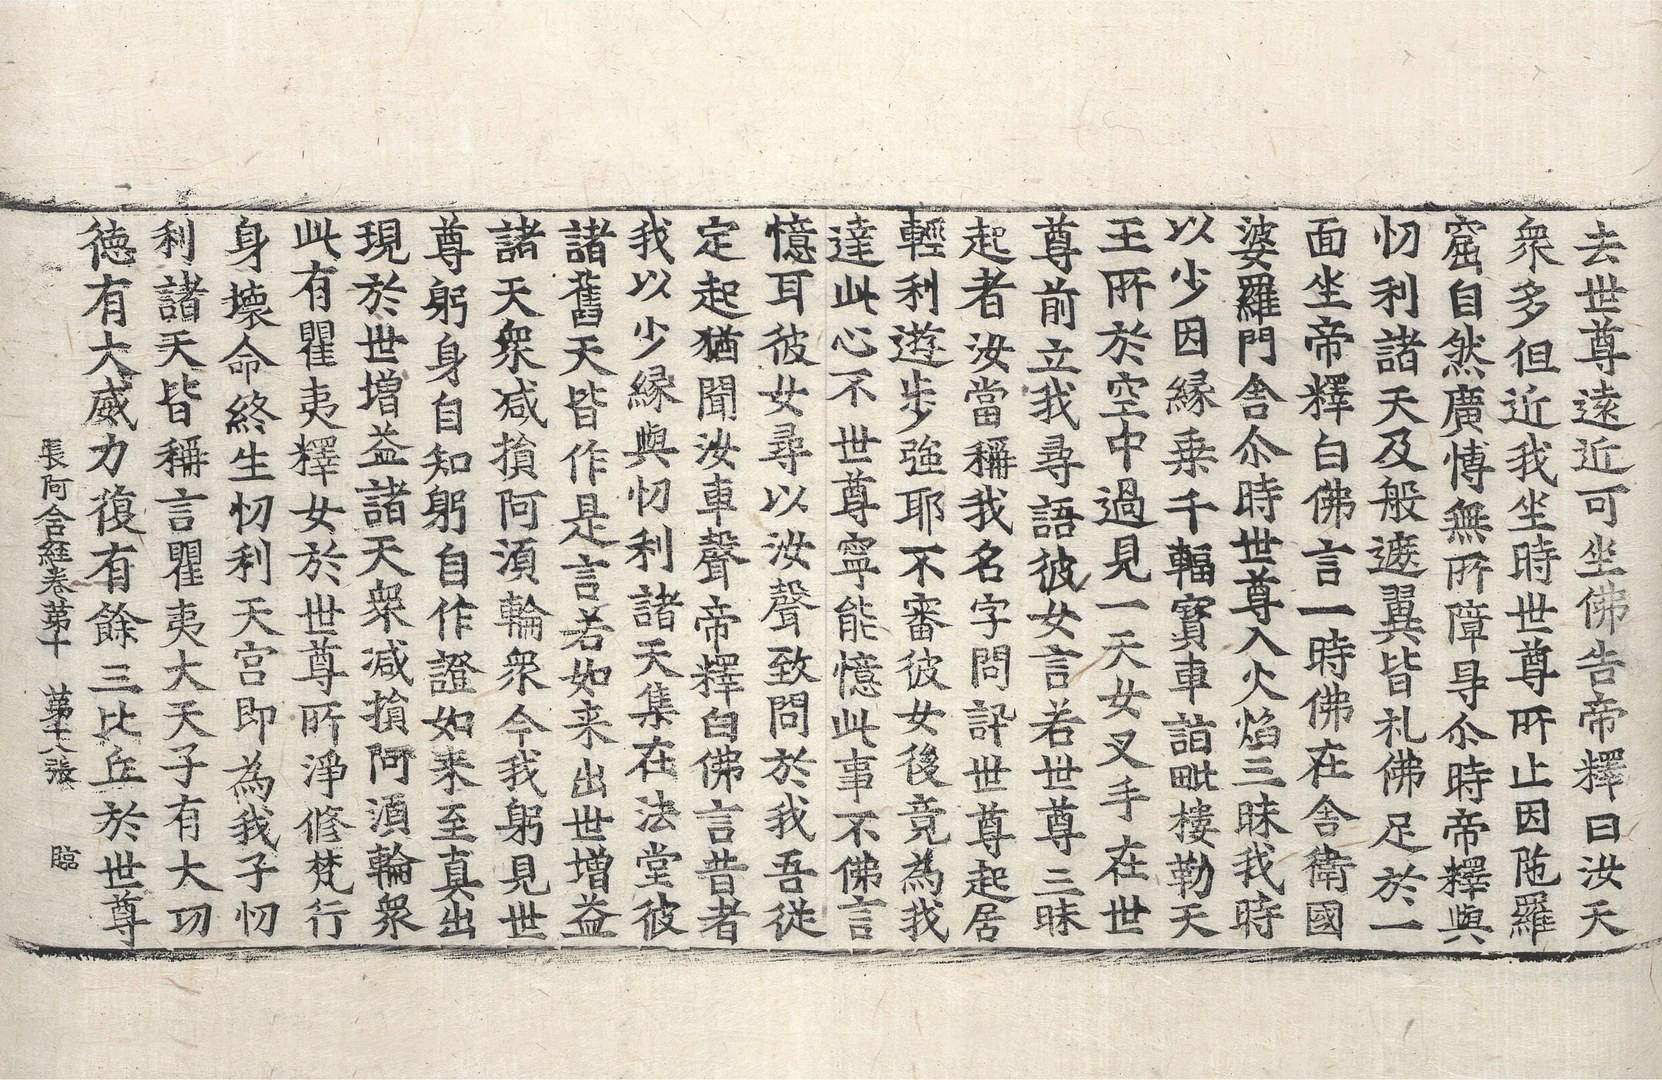 去世尊遠近可坐佛告帝釋曰汝天
衆多但近我坐時世尊所止因陁羅
窟自然廣博無所障㝵尒時帝釋與
忉利諸天及般遮翼皆礼佛足於一
面坐帝釋白佛言一時佛在舍衛國
婆羅門舍尒時世尊入火焰三昧我時
以少因縁乗千輻寳車詣毗樓勒天
王所於空中過見一天女叉手在世
尊前立我尋語彼女言若世尊三昧
起者汝當稱我名字問訊世尊起居
輕利遊步強耶不審彼女後竟為我
達此心不世尊寧能憶此事不佛言
憶耳彼女尋以汝聲致問於我吾従
定起猶聞汝車聲帝釋白佛言昔者
我以少縁與忉利諸天集在法堂彼
諸舊天皆作是言若如来出世增益
諸天衆减損阿湏輪衆今我躬見世
尊躬身自知躬自作證如来至真出
現於世增益諸天衆减損阿湏輪衆
此有瞿夷釋女於世尊所淨修梵行
身壊命終生忉利天宫即為我子忉
利諸天皆稱言瞿夷大天子有大功
德有大威力復有餘三比丘於世尊
長阿含經卷苐十 苐十八張 臨